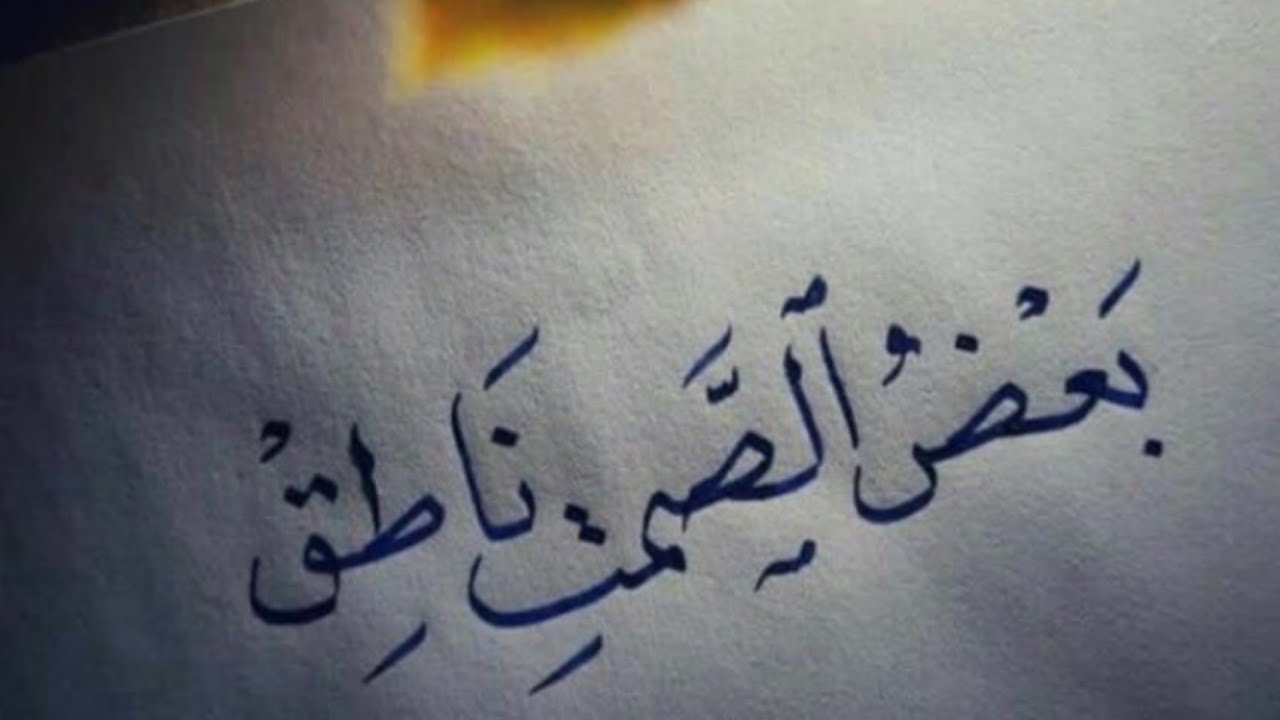 بَعْضُ ٱلصَّمتِ نَاطِقْ